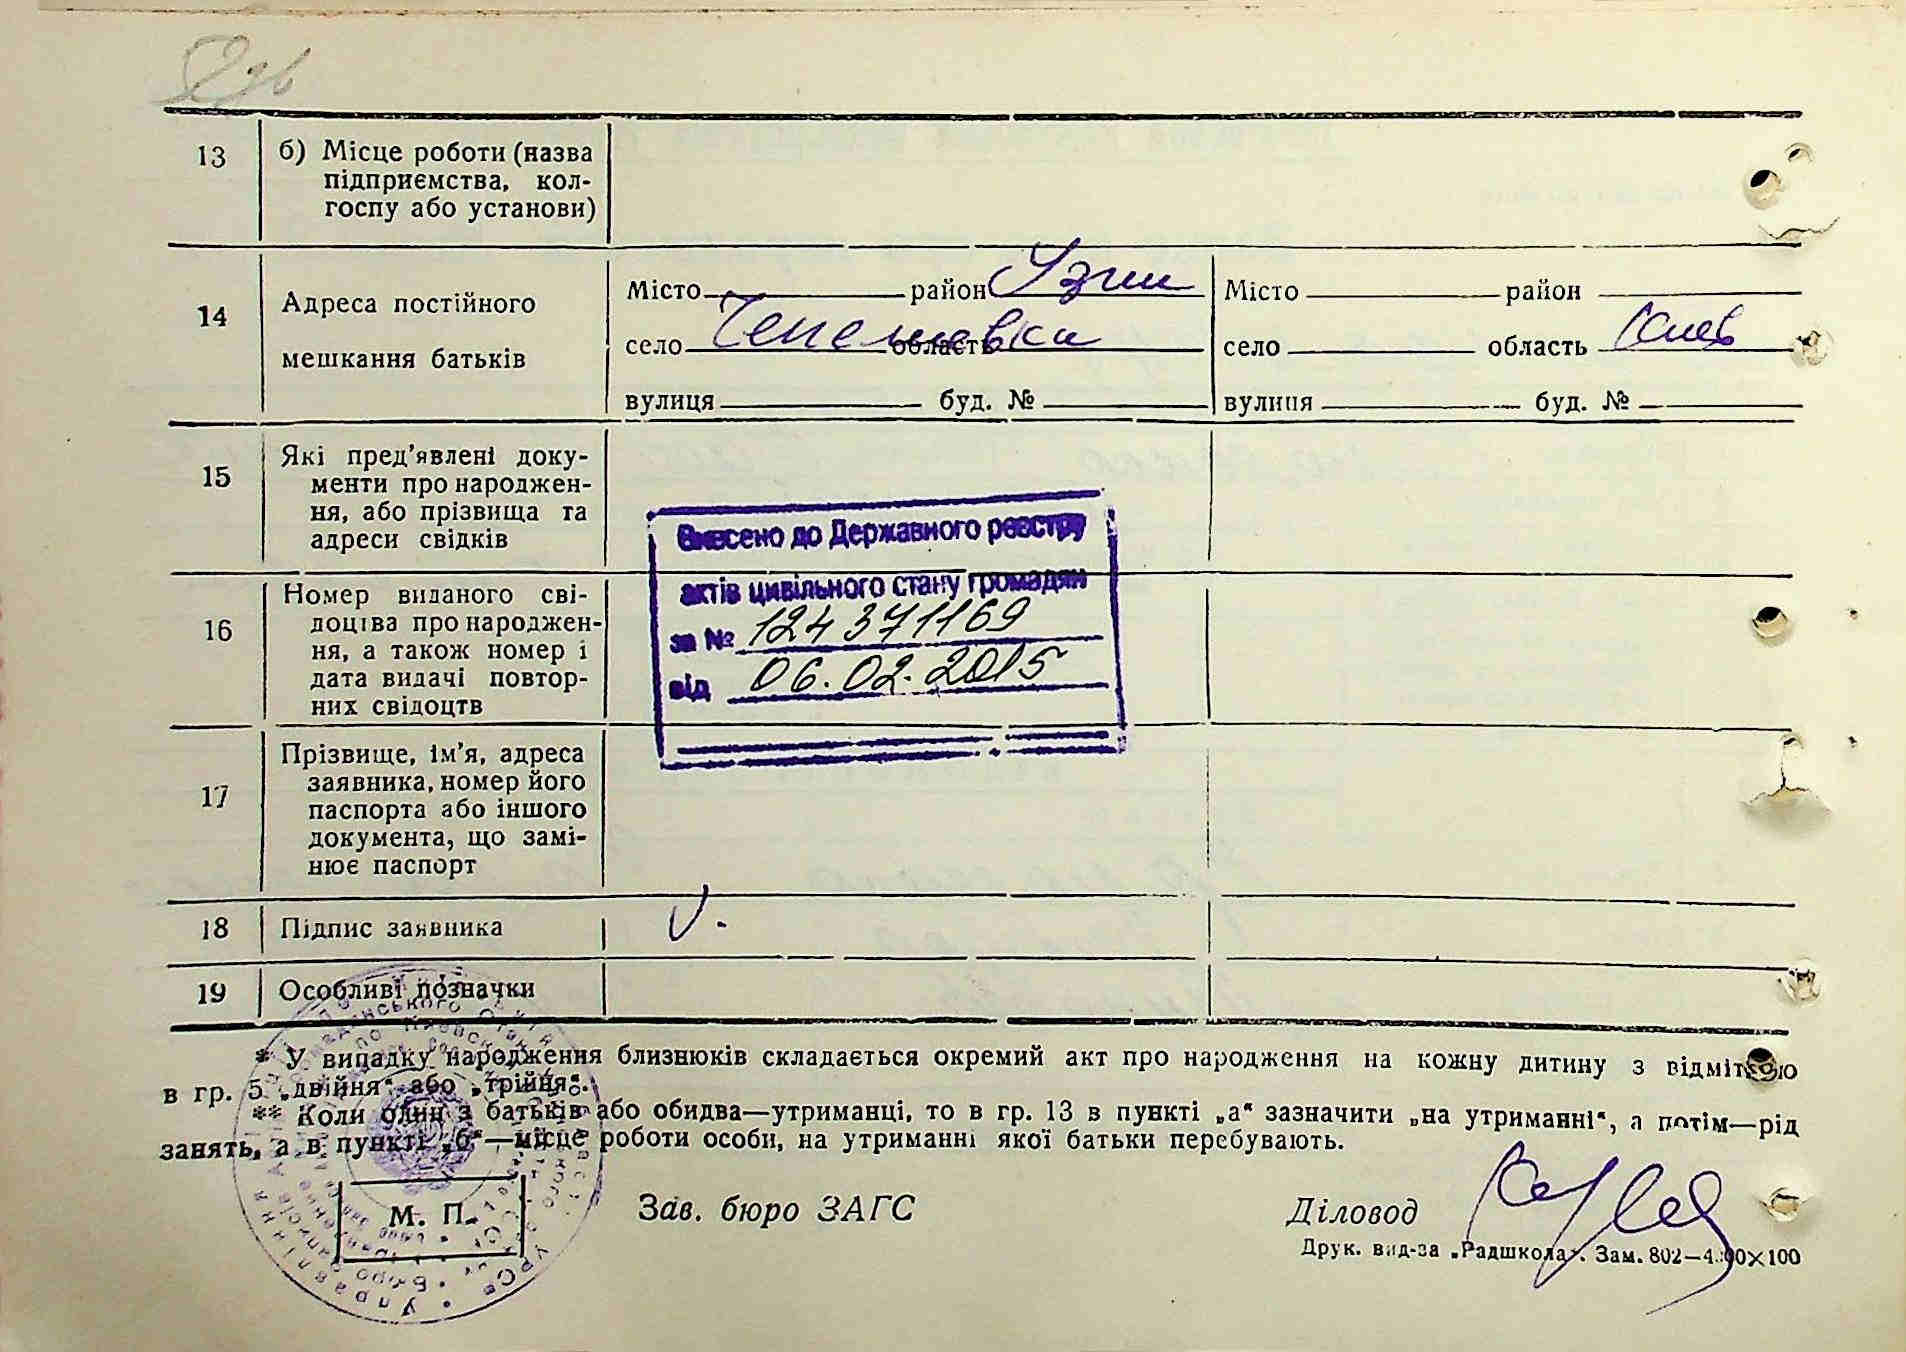 13
б) Місце роботи (назва
підприємства, кол-
госпу або установи)
14
Адреса постійного
мешкання батьків
Місто район Узин
село область
вулиця буд. №
Місто район
село область Києв
вулиця буд. №
15
Які пред'явлені доку-
менти про народжен-
ня, або прізвища та
адреси свідків
Внесено до Державного реєстру
актів цивільного стану громадян
за № 124371169
від 06.02.2015
16
Номер виданого сві-
доцтва про народжен-
ня, а також номер і
дата видачі повтор-
них свідоцтв
17
Прізвище, ім'я, адреса
заявника, номер його
паспорта або іншого
документа, що замі-
нює паспорт
18
Підпис заявника
19
Особливі позначки
* У випадку народження близнюків складається окремий акт про народження на кожну дитину з відміткою
в гр. 5 „двійня“ або „трійня“.
** Коли один з батьків або обидва—утриманці, то в гр. 13 в пункті „а“ зазначити „на утриманні“, а потім—рід
занять, а в пункті „б“—місце роботи особи, на утриманні якої батьки перебувають.
М. П.
Зав. бюро ЗАГС
Діловод
Друк. вид-ва „Радшкола“. Зам. 802—4.:00×100